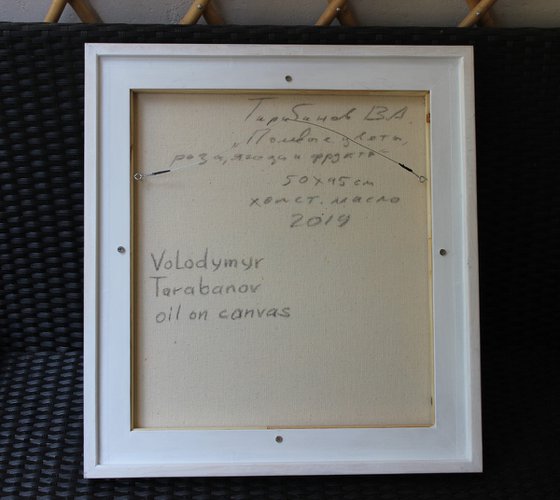 Тарабанов В.А.
„Полевые цветы,
роза, ягоды и фрукты"
50х45 см
холст. масло
2019
Volodymyr
Tarabanov
oil on canvas